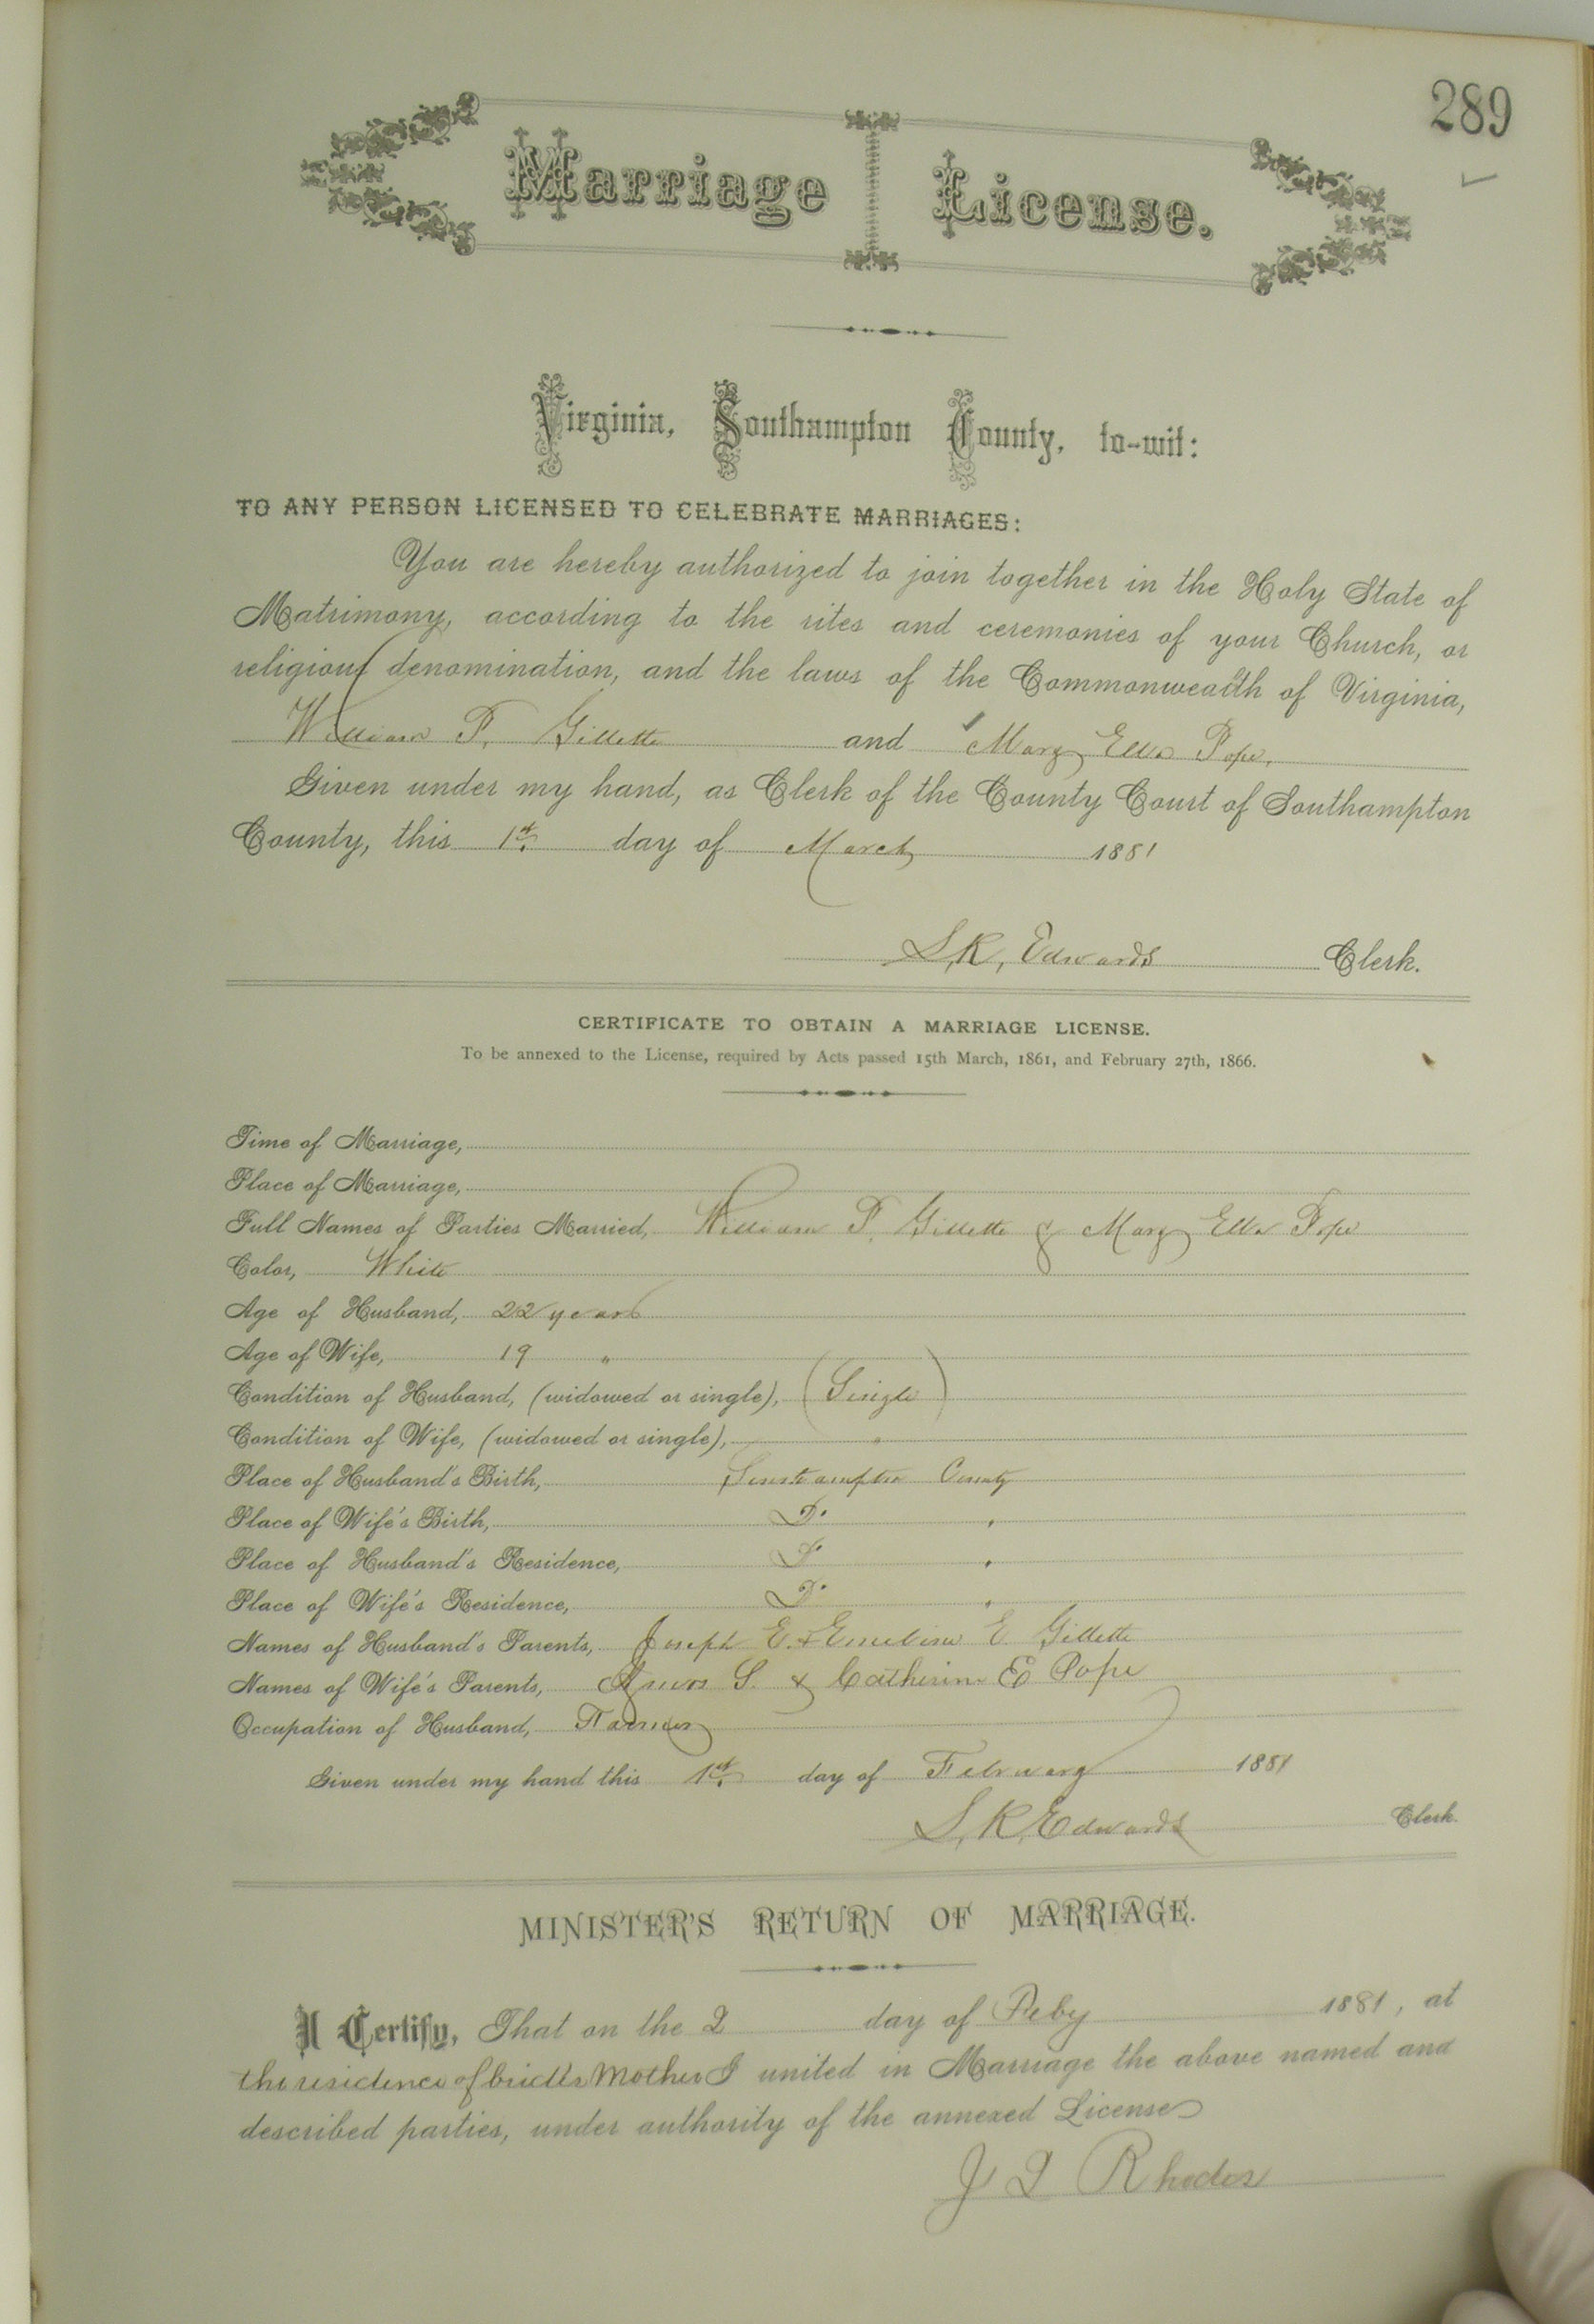 289
Marriage License.
Virginia, Southampton County, to-wit:
TO ANY PERSON LICENSED TO CELEBRATE MARRIAGES:
You are hereby authorized to join together in the Holy State of
Matrimony, according to the rites and ceremonies of your Church, or
religious denomination, and the laws of the Commonwealth of Virginia,
William F. Gillette and Mary Ella Pope,
Given under my hand, as Clerk of the County Court of Southampton
County, this 1st day of March 1881
S, K, Edwards Clerk.
CERTIFICATE TO OBTAIN A MARRIAGE LICENSE.
To be annexed to the License, required by Acts passed 15th March, 1861, and February 27th, 1866.
Time of Marriage,
Place of Marriage,
Full Names of Parties Married, William F. Gillette & Mary Ella Pope
Color, White
Age of Husband, 22 years
Age of Wife, 19 "
Condition of Husband, (widowed or single), (Single)
Condition of Wife, (widowed or single), "
Place of Husband's Birth, Southampton County
Place of Wife's Birth, Do "
Place of Husband's Residence, Do "
Place of Wife's Residence, Do "
Names of Husband's Parents, Joseph E. & Emeline E Gillette
Names of Wife's Parents, S. & Catherine E Pope
Occupation of Husband, Farmer
Given under my hand this 1st day of February 1881
S, K, Edwards Clerk.
MINISTER'S RETURN OF MARRIAGE.
I Certify, That on the 2 day of Feby 1881, at
the residence of bride's Mother I united in Marriage the above named and
described parties, under authority of the annexed License
Rhodes